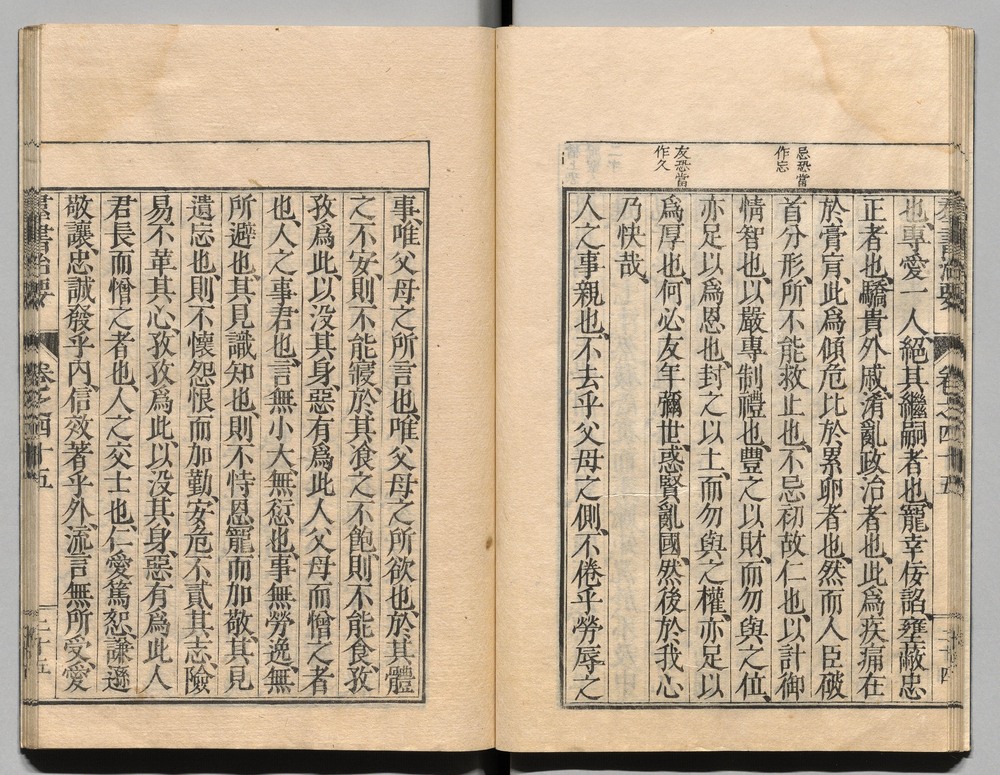 羣書治要 卷之四十五 二十四
忌恐當
作忘
友恐當
作久
也、專愛一人、絕其繼嗣者也、寵幸佞諂、壅蔽忠
正者也、驕貴外戚、淆亂政治者也、此爲疾痛在
於膏肓、此爲傾危比於累卵者也、然而人臣破
首分形、所不能救止也、不忌初故仁也、以計御
情智也、以嚴專制禮也、豐之以財、而勿與之位、
亦足以爲恩也、封之以土、而勿與之權、亦足以
爲厚也、何必友年彌世、惑賢亂國、然後於我心
乃快哉、
人之事親也、不去乎父母之側、不倦乎勞辱之
事、唯父母之所言也、唯父母之所欲也、於其體
之不安、則不能寢、於其飡之不飽、則不能食、孜
孜爲此、以没其身、惡有爲此人父母而憎之者
也、人之事君也、言無小大、無愆也、事無勞逸、無
所避也、其見識知也、則不恃恩寵而加敬、其見
遺忘也、則不懷怨恨而加勤、安危不貳其志、險
易不革其心、孜孜爲此、以没其身、惡有爲此人
君長而憎之者也、人之交士也、仁愛篤恕、謙遜
敬讓、忠誠發乎内、信效著乎外、流言無所受、愛
羣書治要 卷之四十五 二十五